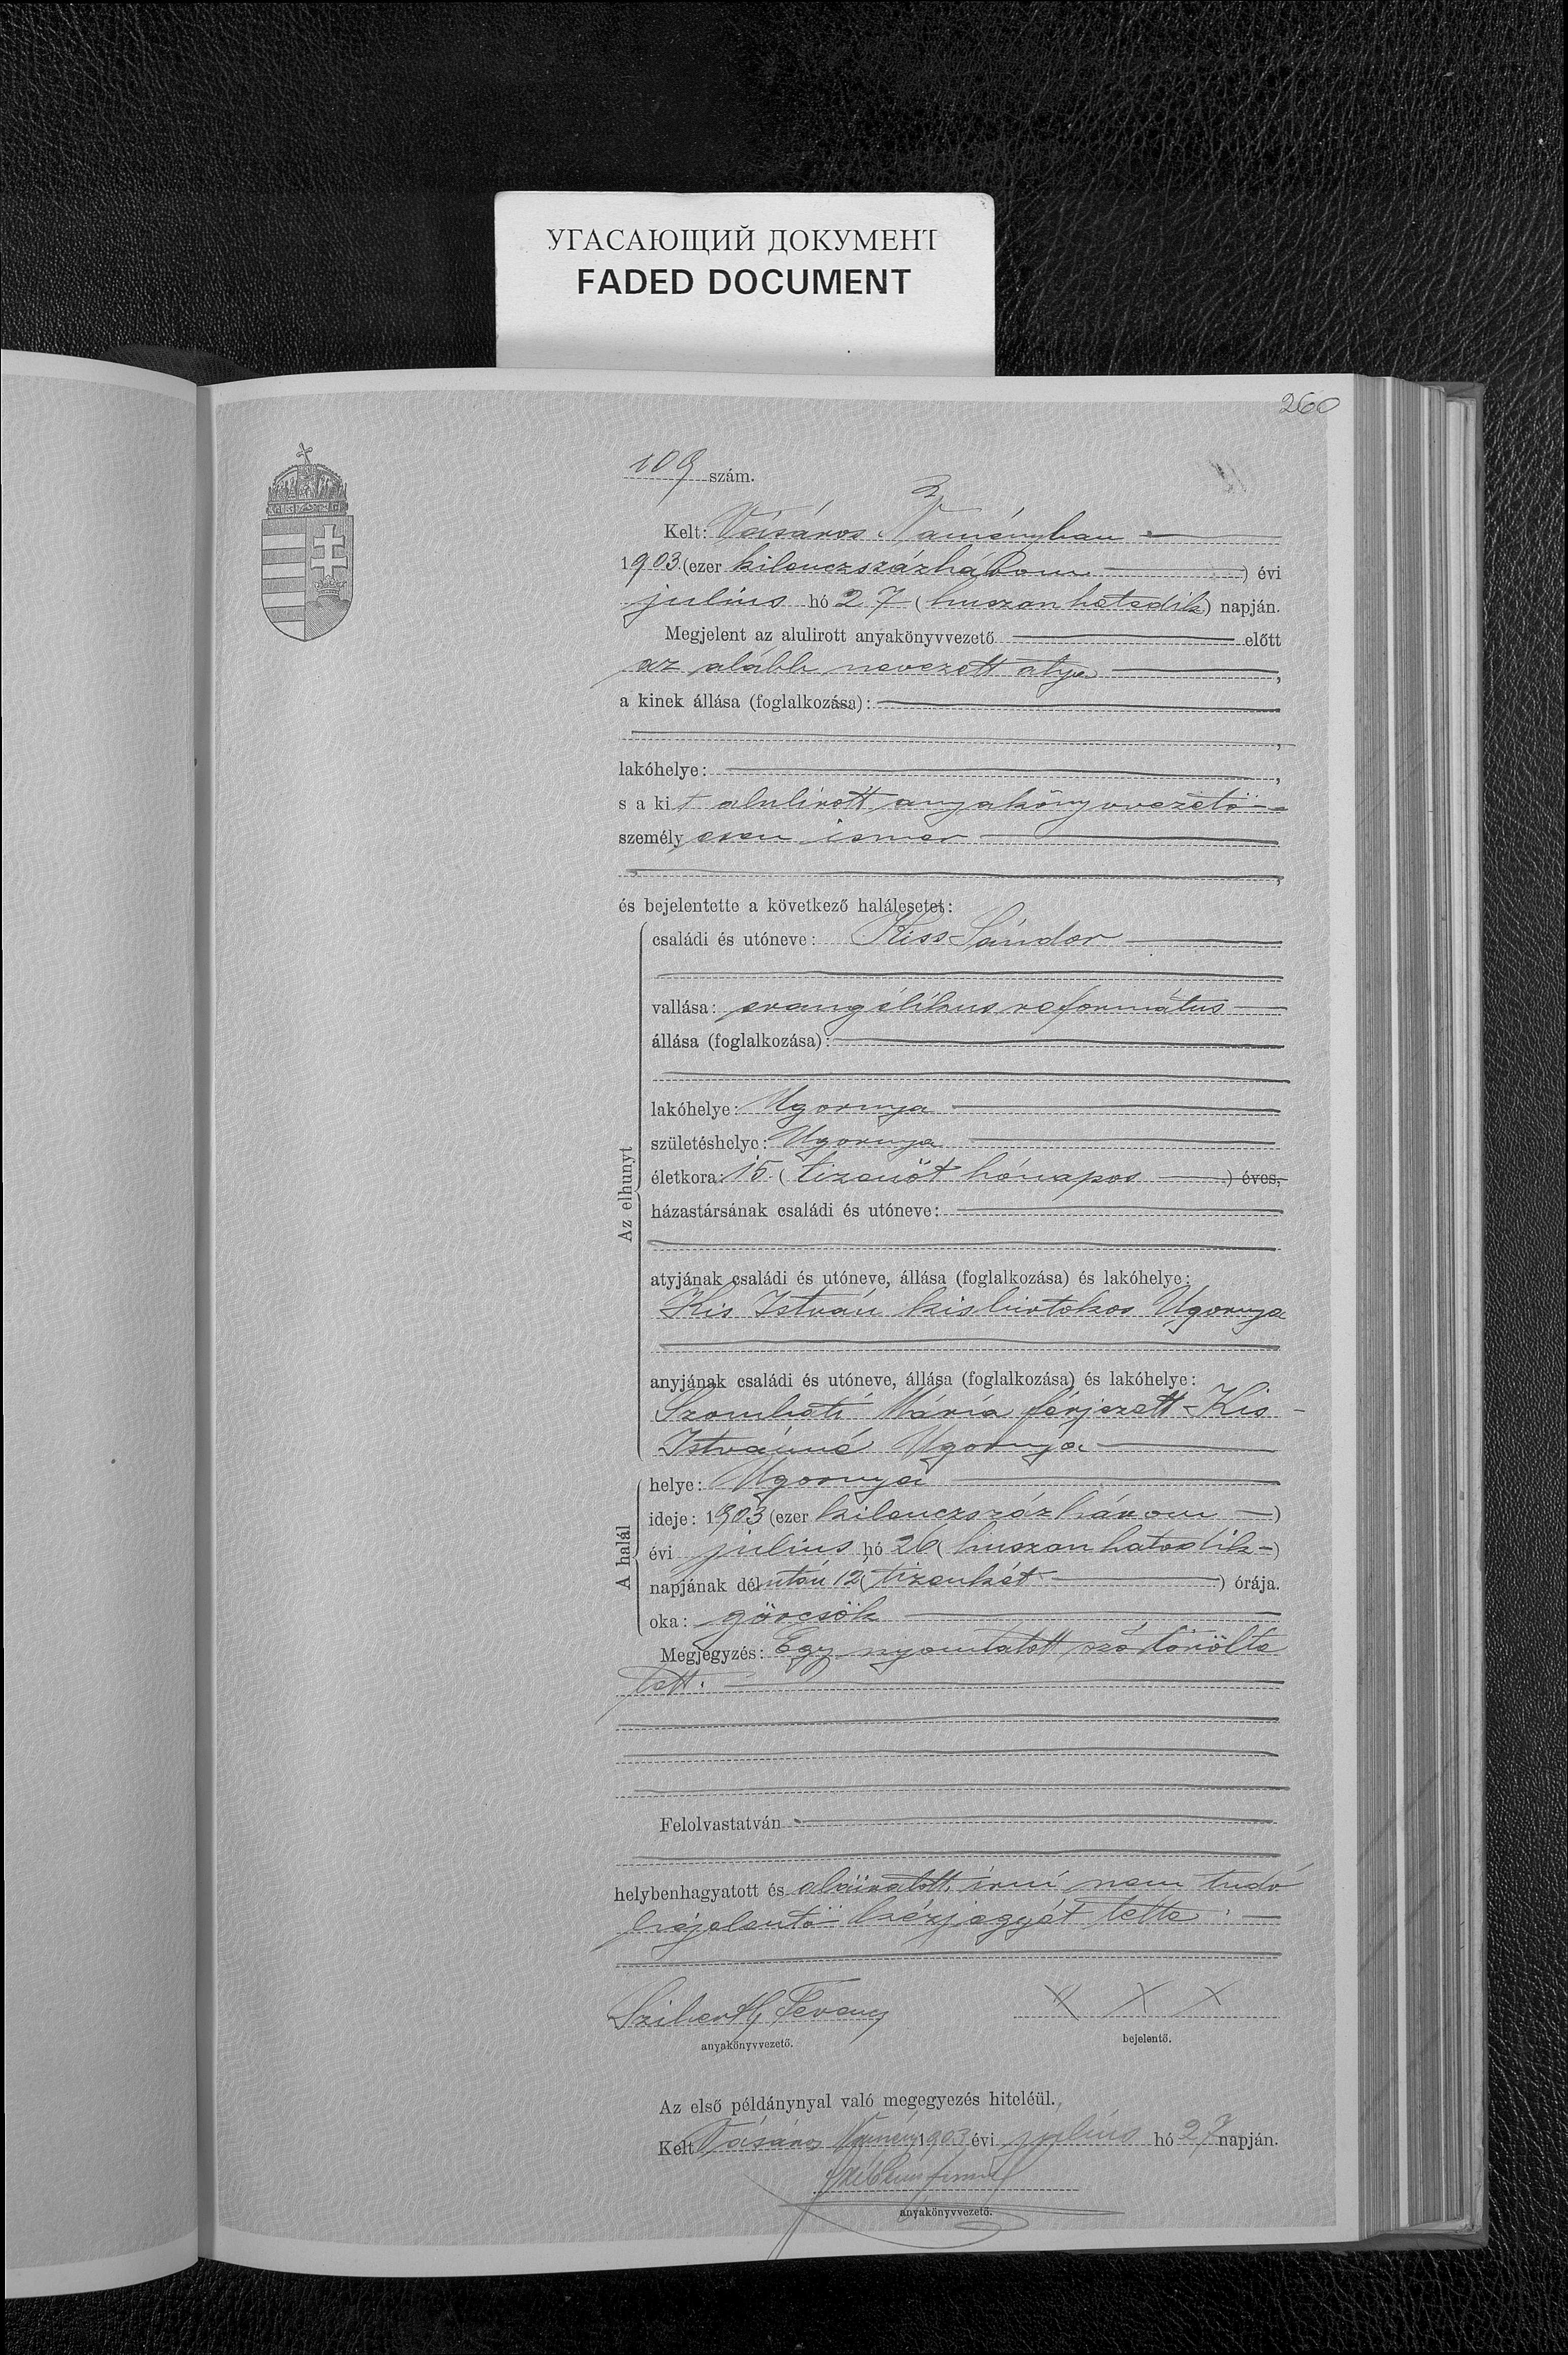 УГАСАЮЩИЙ ДОКУМЕНТ
FADED DOCUMENT
260
109 szám.
Kelt: Vásáros Naményban
1903 (ezer kilenczszázhárom) évi
julius hó 27 (huszonhatodik) napján.
Megjelent az alulirott anyakönyvvezető előtt
az alább nevezett atya,
a kinek állása (foglalkozása):
,
lakóhelye: ,
s a kit alulirott anyakönyvvezető
személyesen ismer
,
és bejelentette a következő halálesetet:
Az elhunyt
családi és utóneve: Kiss Sándor
vallása: evangélikus református
állása (foglalkozása):
lakóhelye: Ugornya
születéshelye: Ugornya
életkora: 15 (tizenöt hónapos) éves,
házastársának családi és utóneve:
atyjának családi és utóneve, állása (foglalkozása) és lakóhelye:
Kis István kisbirtokos Ugornya
anyjának családi és utóneve, állása (foglalkozása) és lakóhelye:
Szombati Mária férjezett Kis
Istvánné Ugornya
A halál
helye: Ugornya
ideje: 1903 (ezer kilenczszázhárom)
évi julius hó 26 (huszonhatodik)
napjának délután 12 (tizenkét) órája.
oka: görcsök
Megjegyzés: Egy nyomtatott szó törölte
tett.
Felolvastatván
helybenhagyatott és aláiratott, irni nem tudó
bejelentő kézjegyét tette.
Ferencz X X X
anyakönyvvezető. bejelentő.
Az első példánynyal való megegyezés hiteléül.
Kelt Vásáros Namény 1903 évi julius hó 27 napján.
anyakönyvvezető.